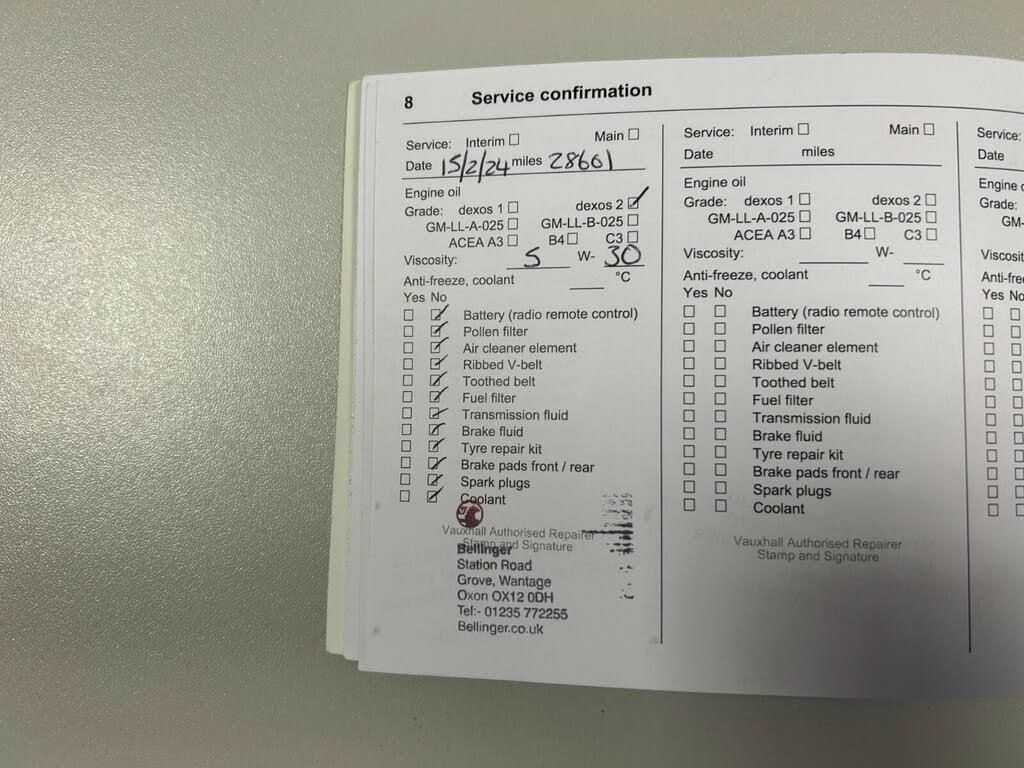 8 Service confirmation
Service: Interim ☐ Main ☐
Date 15/2/24 miles 28601
Engine oil
Grade: dexos 1 ☐ dexos 2 ☑
GM-LL-A-025 ☐ GM-LL-B-025 ☐
ACEA A3 ☐ B4 ☐ C3 ☐
Viscosity: 5 W- 30
Anti-freeze, coolant ____ °C
Yes No
☐ ☑ Battery (radio remote control)
☐ ☑ Pollen filter
☐ ☑ Air cleaner element
☐ ☑ Ribbed V-belt
☐ ☑ Toothed belt
☐ ☑ Fuel filter
☐ ☑ Transmission fluid
☐ ☑ Brake fluid
☐ ☑ Tyre repair kit
☐ ☑ Brake pads front / rear
☐ ☑ Spark plugs
☐ ☑ Coolant
Vauxhall Authorised Repairer
Stamp and Signature
Bellinger
Station Road
Grove, Wantage
Oxon OX12 0DH
Tel:- 01235 772255
Bellinger.co.uk
Service: Interim ☐ Main ☐
Date miles
Engine oil
Grade: dexos 1 ☐ dexos 2 ☐
GM-LL-A-025 ☐ GM-LL-B-025 ☐
ACEA A3 ☐ B4 ☐ C3 ☐
Viscosity: ____ W- ____
Anti-freeze, coolant ____ °C
Yes No
☐ ☐ Battery (radio remote control)
☐ ☐ Pollen filter
☐ ☐ Air cleaner element
☐ ☐ Ribbed V-belt
☐ ☐ Toothed belt
☐ ☐ Fuel filter
☐ ☐ Transmission fluid
☐ ☐ Brake fluid
☐ ☐ Tyre repair kit
☐ ☐ Brake pads front / rear
☐ ☐ Spark plugs
☐ ☐ Coolant
Vauxhall Authorised Repairer
Stamp and Signature
Service:
Date
Engine
Grade:
GM-
Viscosit
Anti-fre
Yes No